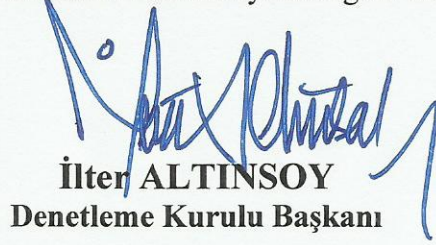 İlter ALTINSOY
Denetleme Kurulu Başkanı